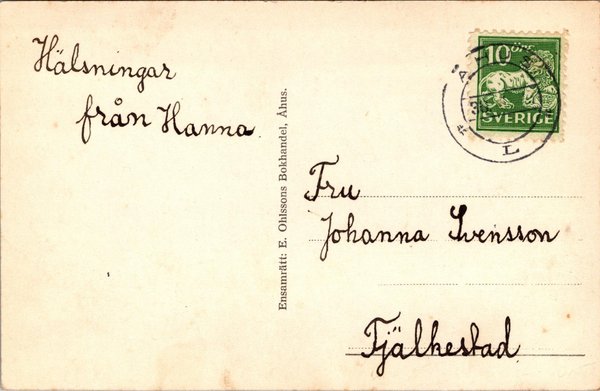 Hälsningar
från Hanna.
10 ÖRE
SVERIGE
L
Ensamrätt: E. Ohlssons Bokhandel, Åhus.
Fru
Johanna Svensson
Fjälkestad